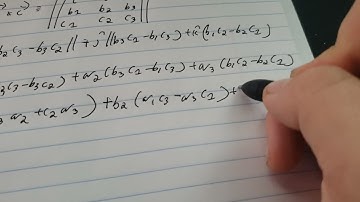 * c) = || b1 b2 b3 ||
c1 c2 c3
b2c3 - b3c2|| + ĵ||b3c1 - b1c3|| + k̂(b1c2 - b2c1)
c3 - b3c2) + a2(b3c1 - b1c3) + a3(b1c2 - b2c1)
3 a2 + c2 a3) + b2(a1c3 - a3c1) +